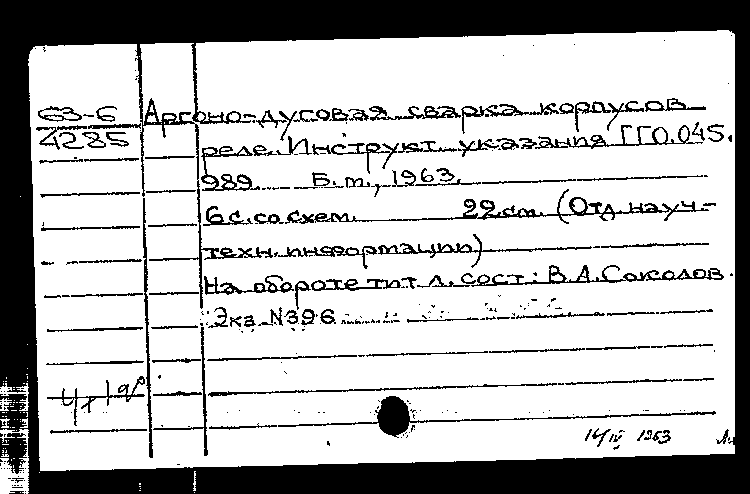 63-6 Аргоно-дуговая сварка корпусов
4285 реле. Инструкт. указания ГГО.045.
989. Б.м., 1963.
6 с. со схем. 22 см. (Отд. науч-
техн. информации)
На обороте тит. л. сост.: В.А. Соколов.
Экз. №396
14/IV 1963